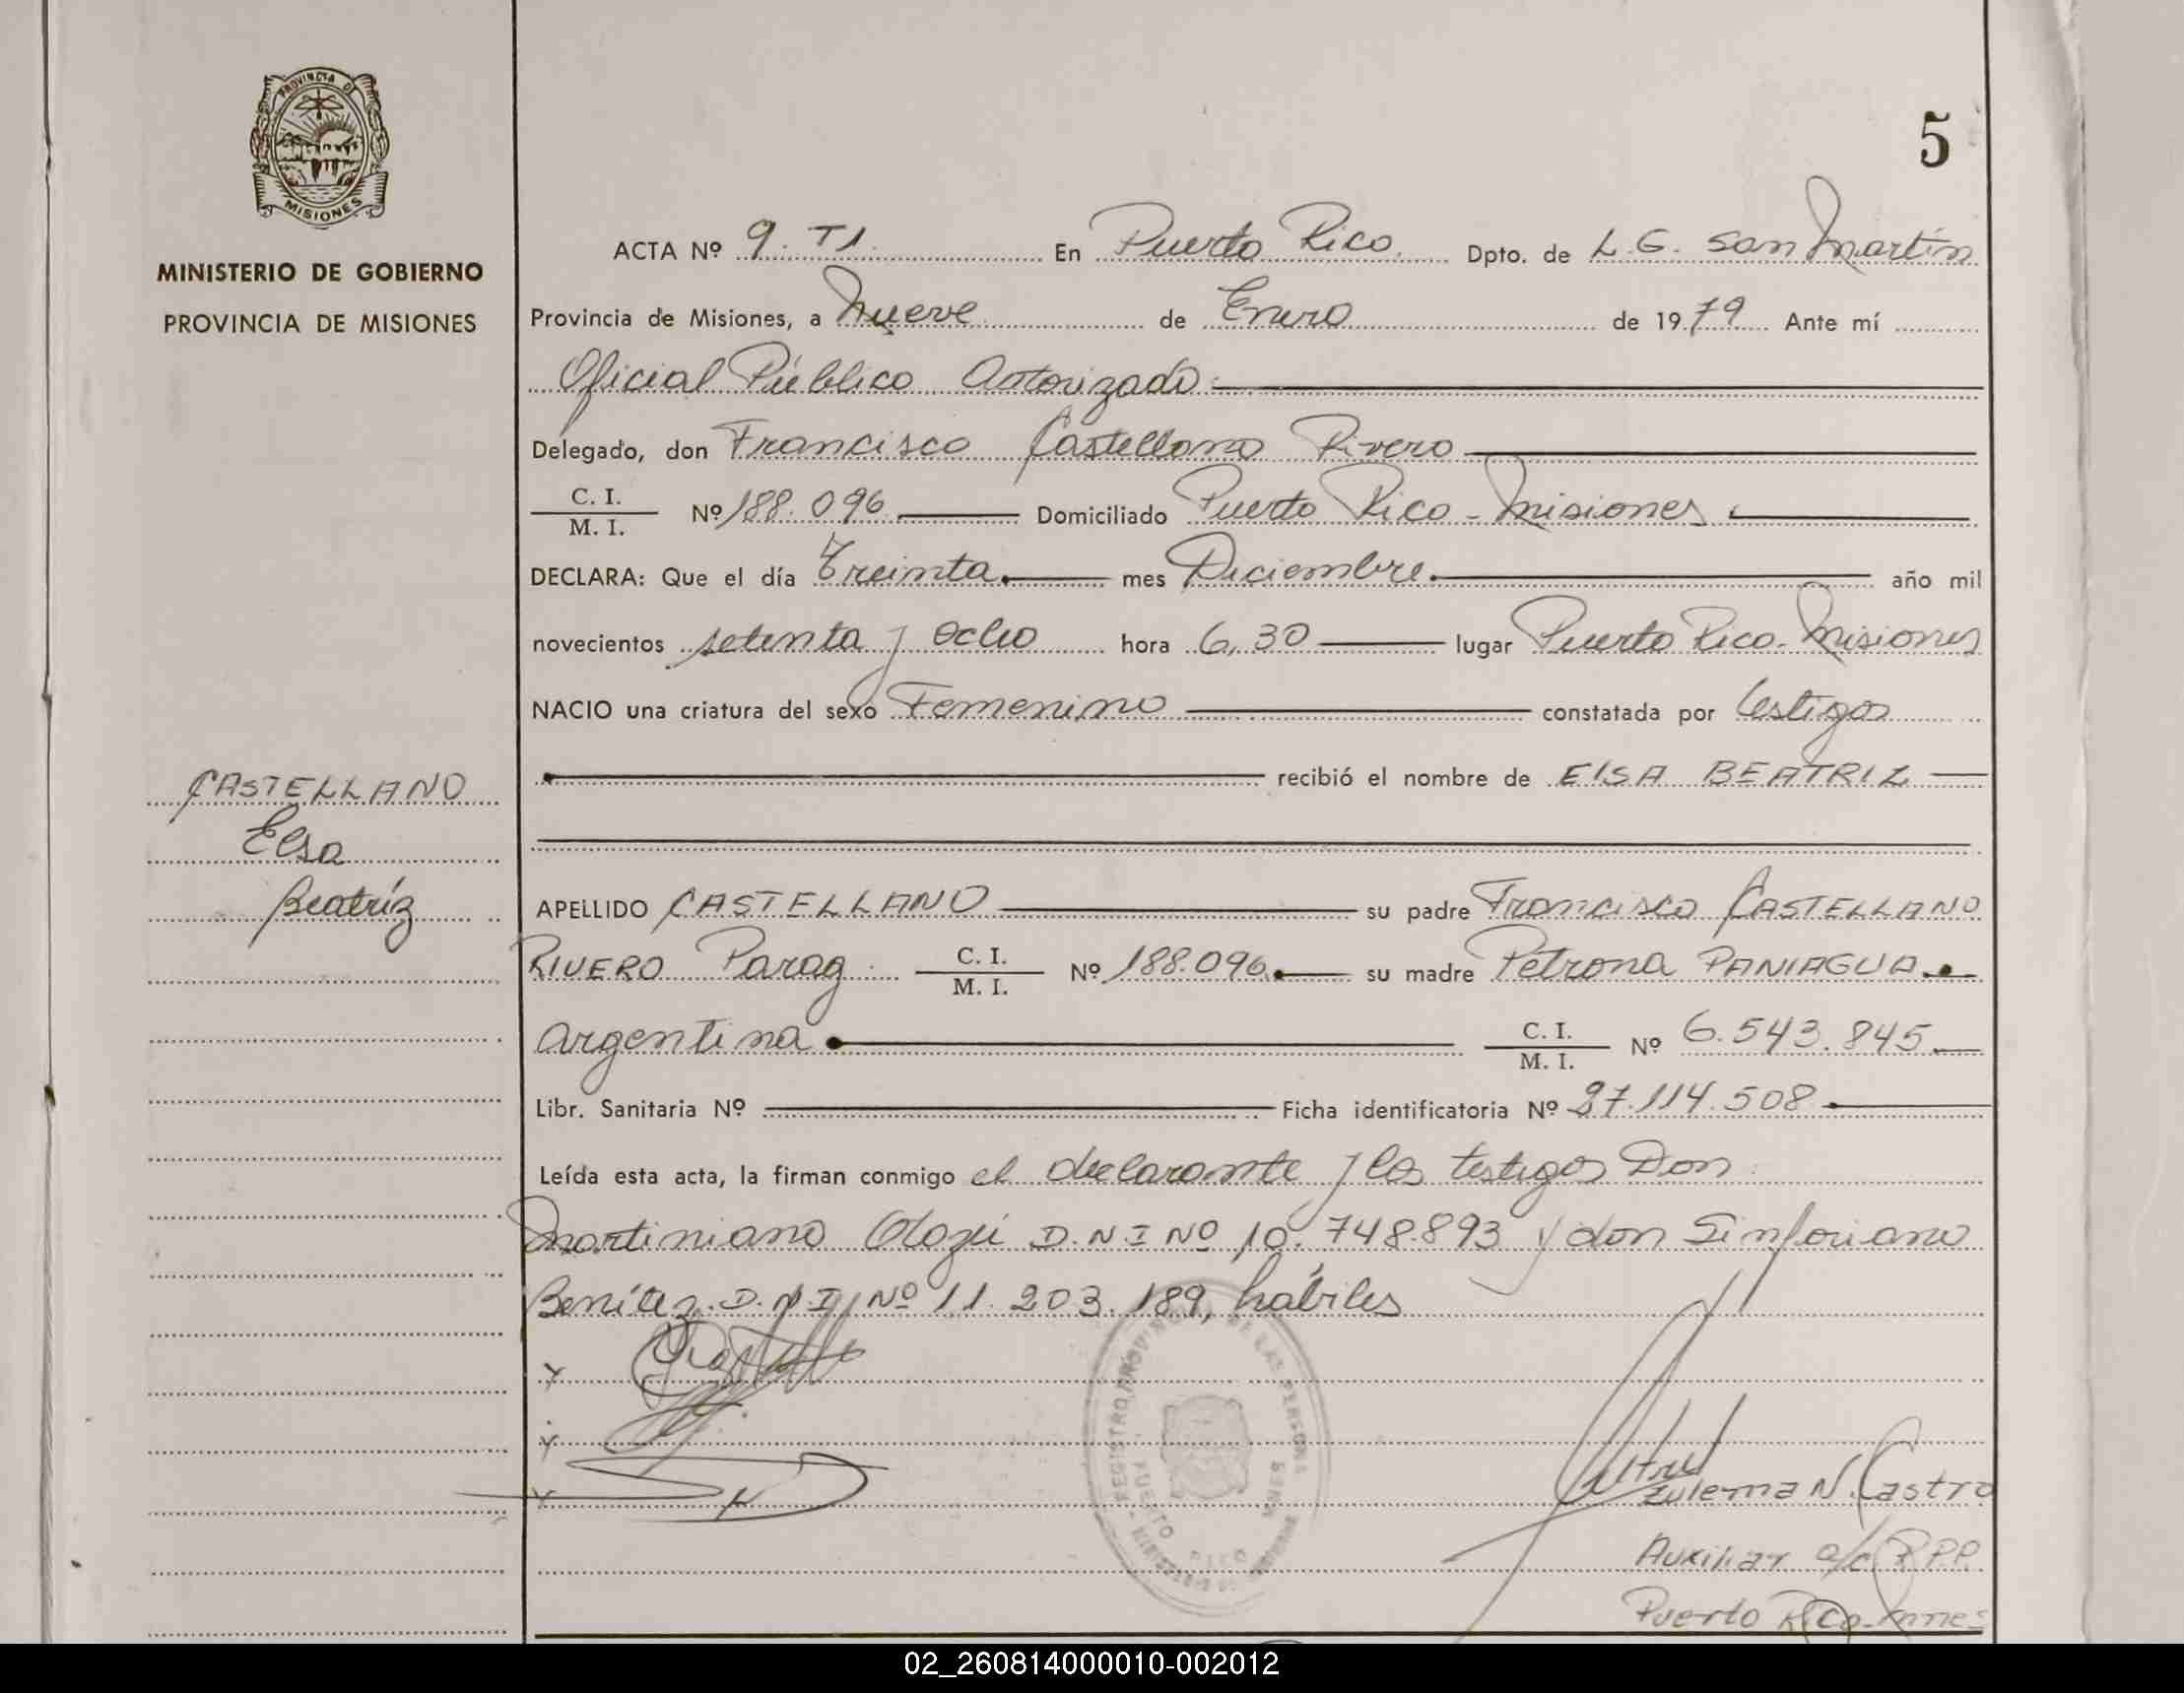 PROVINCIA DE
MISIONES
MINISTERIO DE GOBIERNO
PROVINCIA DE MISIONES
5
ACTA Nº 9. T1. En Puerto Rico. Dpto. de L. G. San Martín
Provincia de Misiones, a Nueve de Enero de 1979 Ante mí
Oficial Público Autorizado
Delegado, don Francisco Castellano Rivero
C. I.
M. I. Nº 188.096 Domiciliado Puerto Rico - Misiones
DECLARA: Que el día Treinta mes Diciembre año mil
novecientos setenta y ocho hora 6,30 lugar Puerto Rico. Misiones
NACIO una criatura del sexo Femenino constatada por testigos
recibió el nombre de ElSA BEATRIZ
CASTELLANO
Elsa
Beatríz
APELLIDO CASTELLANO su padre Francisco CASTELLANO
RIVERO Parag. C. I.
M. I. Nº 188.096 su madre Petrona PANIAGUA
argentina C. I.
M. I. Nº 6.543.845
Libr. Sanitaria Nº Ficha identificatoria Nº 27.114.508
Leída esta acta, la firman conmigo el declarante y los testigos Don
Martiniano D.N.I Nº 10.748.893 y don Sinforiano
Benítez. D.N.I Nº 11.203.189, hábiles
Zulema N. Castro
Auxiliar a/c R.P.P.
Puerto Rico - Mnes
02_260814000010-002012